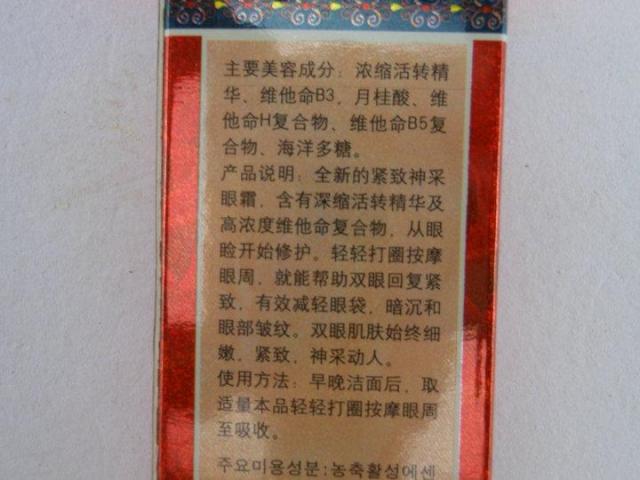 主要美容成分：浓缩活转精
华、维他命B3，月桂酸、维
他命H复合物、维他命B5复
合物、海洋多糖。
产品说明：全新的紧致神采
眼霜，含有深缩活转精华及
高浓度维他命复合物，从眼
睑开始修护。轻轻打圈按摩
眼周，就能帮助双眼回复紧
致，有效减轻眼袋，暗沉和
眼部皱纹。双眼肌肤始终细
嫩，紧致，神采动人。
使用方法：早晚洁面后，取
适量本品轻轻打圈按摩眼周
至吸收。
주요미용성분:농축활성에센